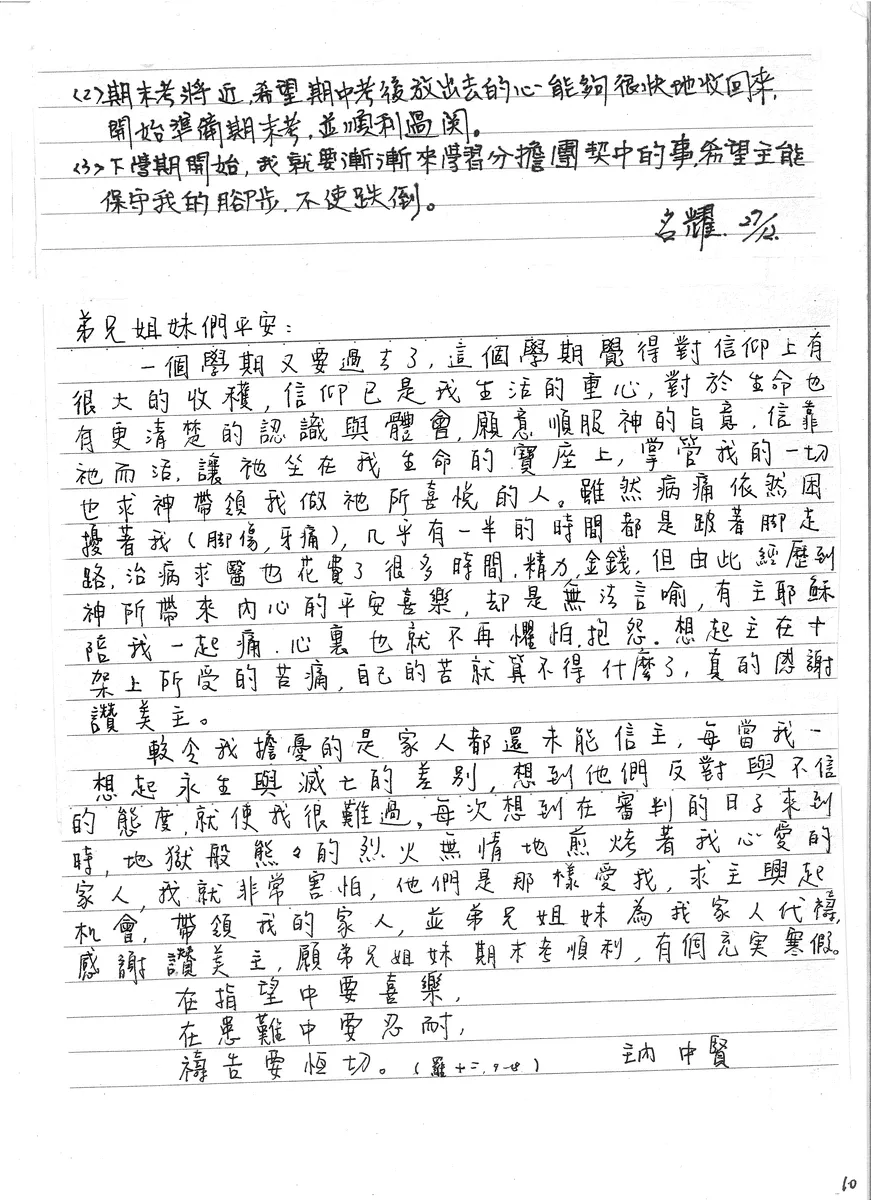 (2)期末考將近,希望期中考後放出去的心能夠很快地收回來,
開始準備期末考,並順利過関。
(3)下學期開始,我就要漸漸來學習分擔團契中的事,希望主能
保守我的腳步,不使跌倒。
名耀. 27/12.
弟兄姐妹們平安:
一個學期又要過去了,這個學期覺得對信仰上有
很大的收穫,信仰已是我生活的重心,對於生命也
有更清楚的認識與體會,願意順服神的旨意,信靠
祂而活,讓祂坐在我生命的寶座上,掌管我的一切
也求神帶領我做祂所喜悅的人。雖然病痛依然困
擾著我(脚傷,牙痛),几乎有一半的時間都是跛著脚走
路,治病求醫也花費了很多時間,精力,金錢,但由此經歷到
神所帶來內心的平安喜樂,却是無法言喻,有主耶穌
陪我一起痛.心裏也就不再懼怕,抱怨.想起主在十
架上所受的苦痛,自己的苦就算不得什麼了,真的感謝
讚美主。
較令我擔憂的是家人都還未能信主,每當我一
想起永生與滅亡的差別,想到他們反對與不信
的態度,就使我很難過。每次想到在審判的日子來到
時,地獄般熊々的烈火無情地煎烤著我心愛的
家人,我就非常害怕,他們是那樣愛我,求主興起
机會,帶領我的家人,並弟兄姐妹為我家人代禱,
感謝讚美主,願弟兄姐妹期末考順利,有個充実寒假。
在指望中要喜樂,
在患難中要忍耐,
禱告要恆切。(羅十二,
主內 中賢
10